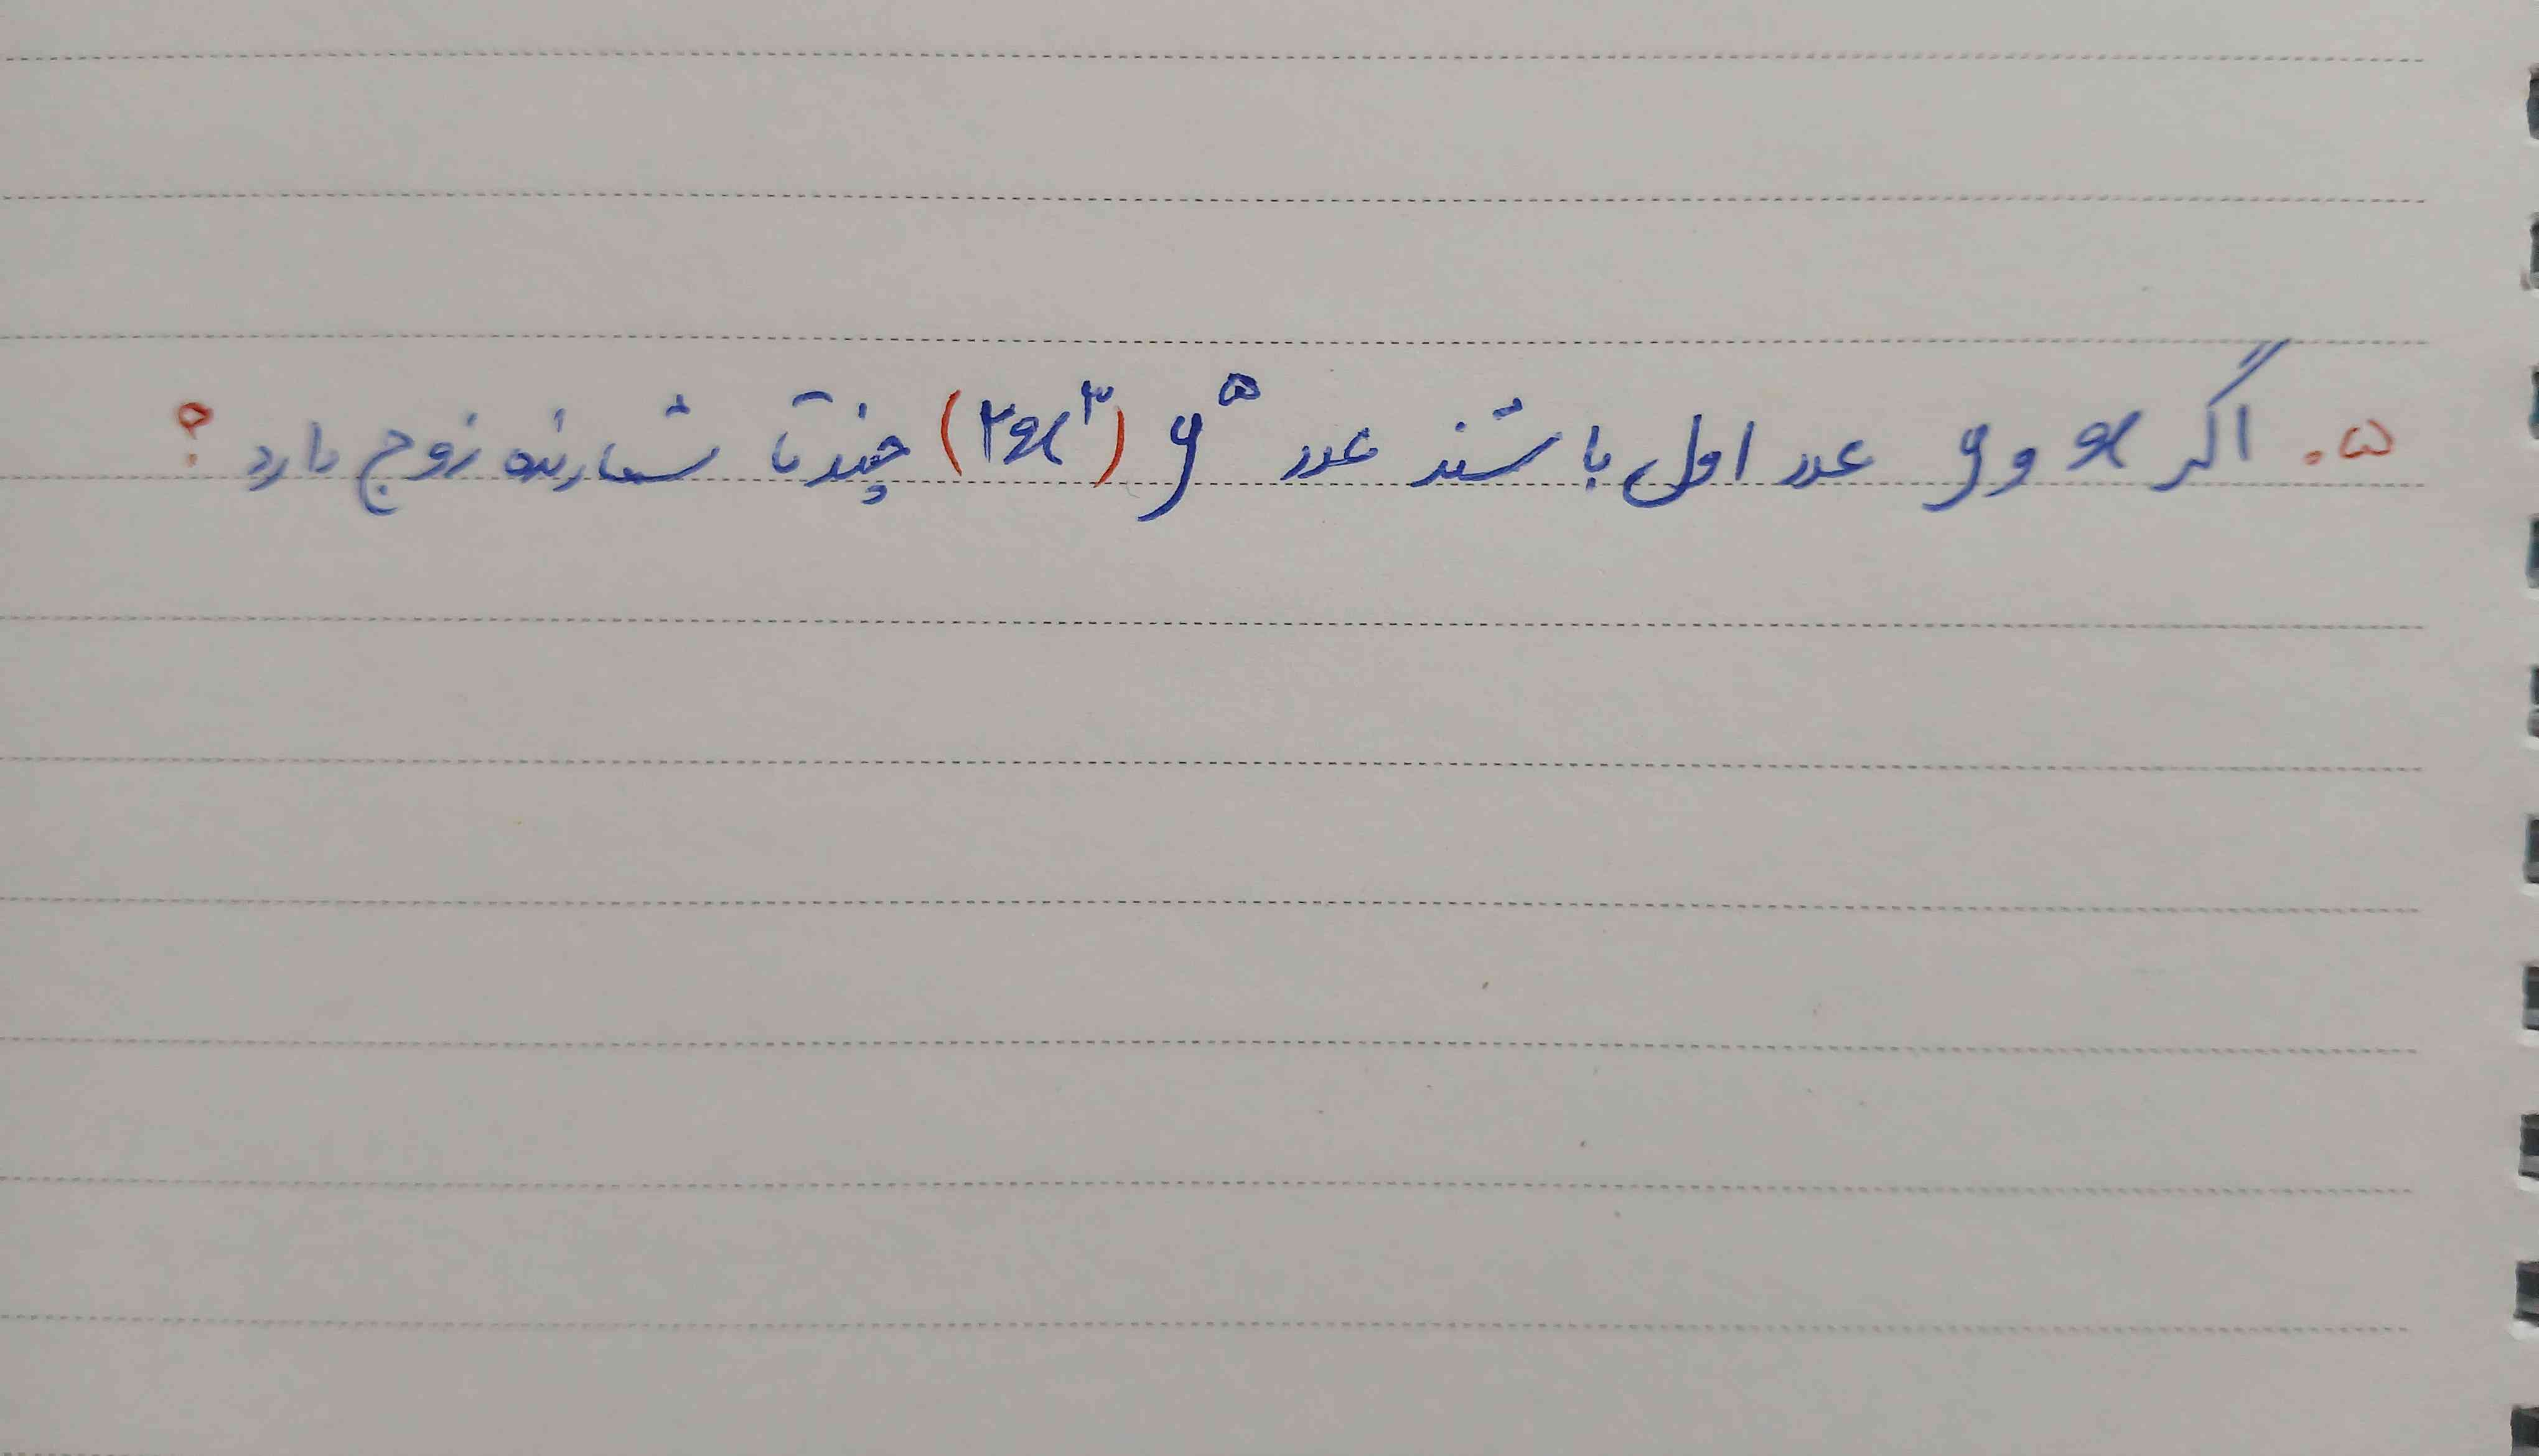 ۵. اگر x و y عدد اول باشند عدد (۲x^۳) y^۵ چندتا شمارنده زوج دارد ؟